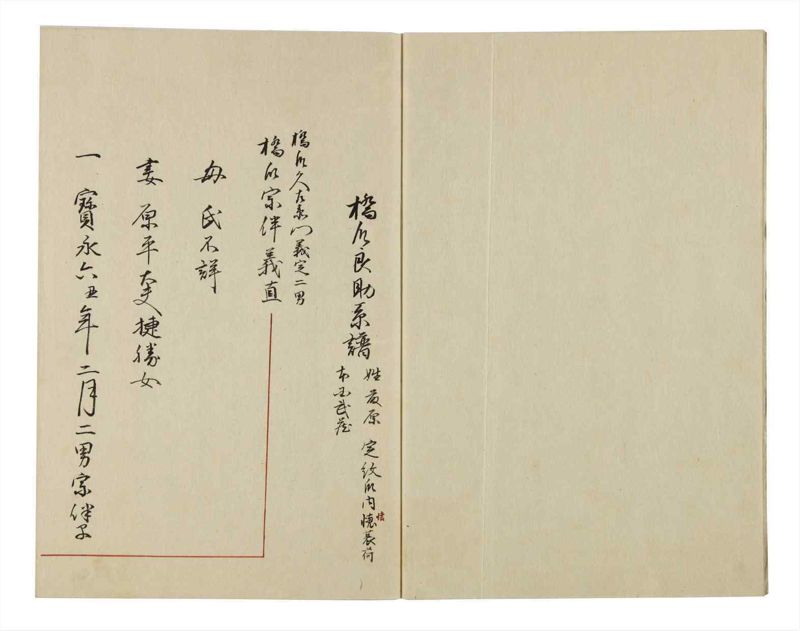 橋爪良助系譜
姓藤原 定紋爪内抱茗荷
本国武蔵
橋爪久左衛門義定二男
橋爪宗伴義直
母 氏不詳
妻 原平大夫捷勝女
一 寳永六丑年二月二男宗伴子